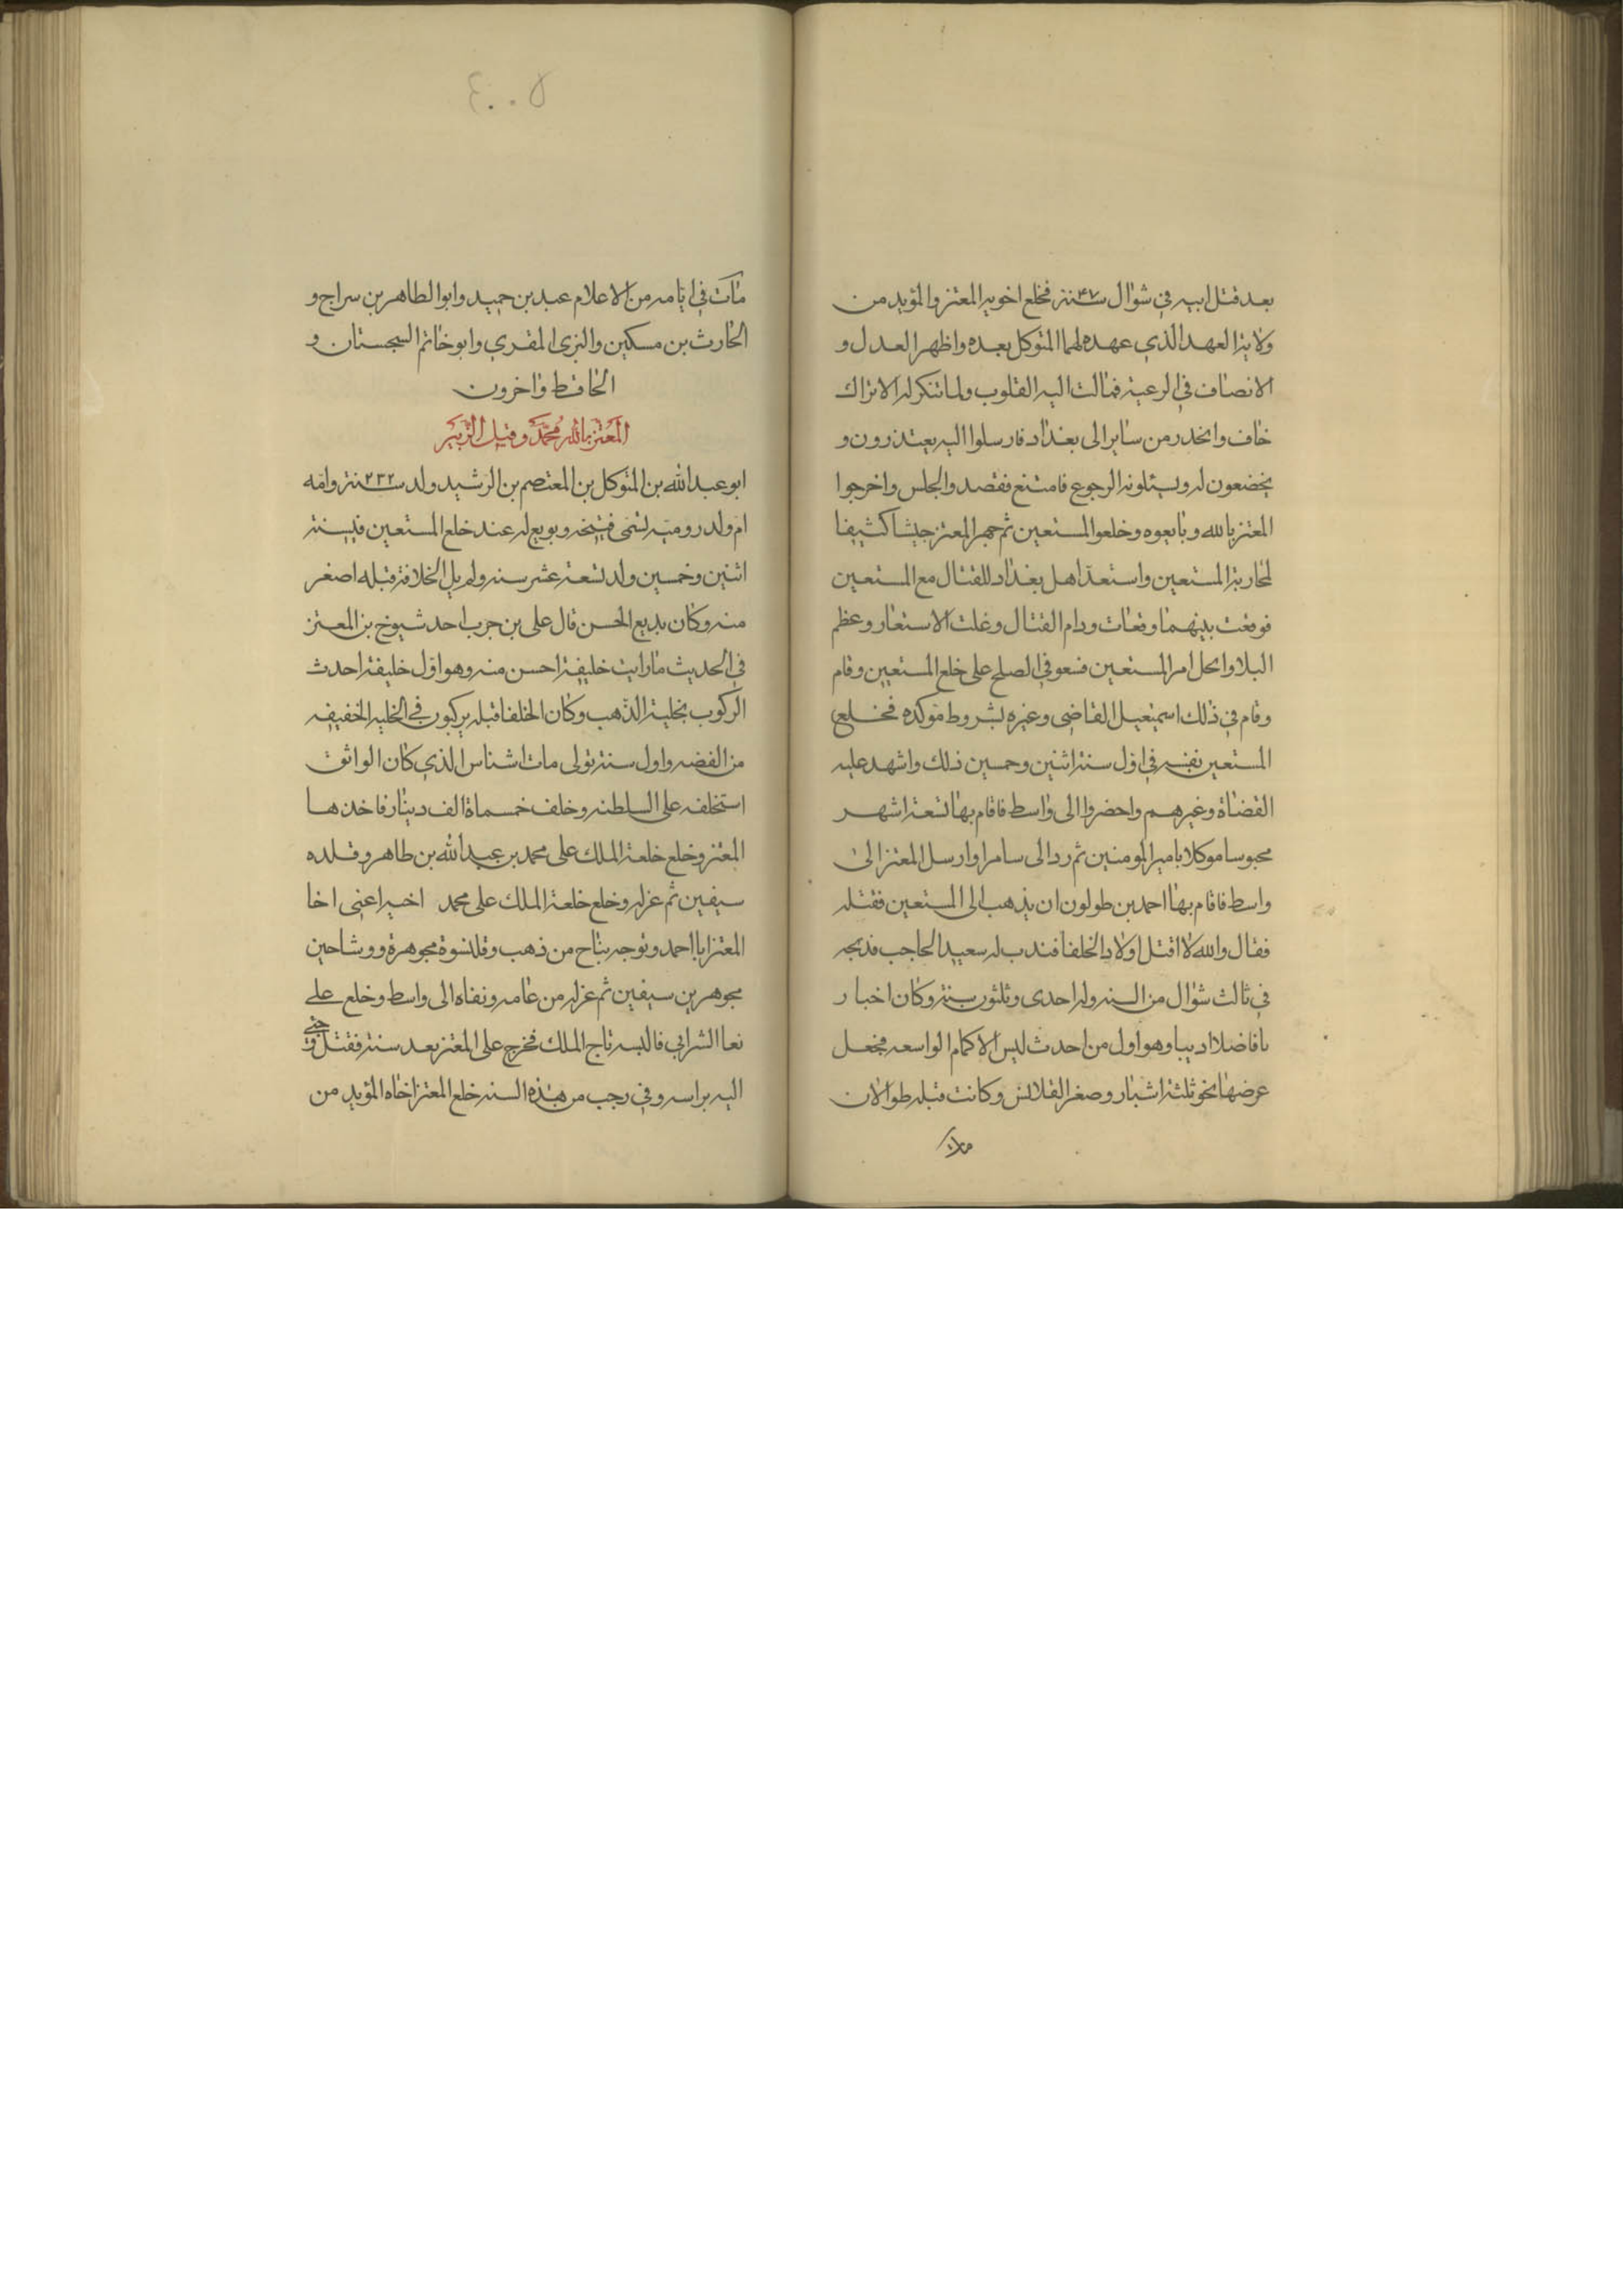 بعد قتل ابيه في شوال سنة ٢٤٧ فخلع اخويه المعتز والمؤيد من
ولاية العهد الذي عهده لهما المتوكل بعده واظهر العدل و
الانصاف في الرعية فمالت اليه القلوب ولما تنكر له الاتراك
خاف وانحدر من سابرا الى بغداد فارسلوا اليه يعتذرون و
يخضعون له ويسئلونه الرجوع فامتنع فقصدوا الجلس واخرجوا
المعتز بالله وبايعوه وخلعوا المستعين ثم جهز المعتز جيشا كثيفا
لمحاربة المستعين واستعد اهل بغداد للقتال مع المستعين
فوقعت بينهما وقعات ودام القتال وغلت الاستعار وعظم
البلا وانحل امر المستعين فسعو في الصلح على خلع المستعين وقام
وقام في ذلك اسمعيل القاضى وغيره بشروط موكده فخلع
المستعين نفسه في اول سنة اثنين وخمسين ذلك واشهد عليه
القضاة وغيرهم واحضروا الى واسط فاقام بها تسعة اشهر
محبوسا موكلا بامير المومنين ثم رد الى سامرا وارسل المعتز الى
واسط فاقام بها احمد بن طولون ان يذهب الى المستعين فقتله
فقال والله لا اقتل اولاد الخلفا فندب له سعيد الحاجب فذبحه
في ثالث شوال من السنه وله احدى وثلثون سنة وكان اخبار
يا فاضلا اديبا وهو اول من احدث لبس الاكمام الواسعه فجعل
عرضها نحو ثلثة اشبار وصغر القلانس وكانت قبله طوالان
٤٠٠٥
مات في ايامه من الاعلام عبد بن حميد وابو الطاهر بن سراج و
الحارث بن مسكين والبزى المقري وابو خاتم السجستان و
الحافظ واخرون
المعتز بالله محمد وقيل الزبير
ابو عبد الله بن المتوكل بن المعتصم بن الرشيد ولد سنة ٢٣٢ وامه
ام ولد رومية تسمى فتيحه وبويع له عند خلع المستعين في سنة
اثنين وخمسين وله تسعة عشر سنه ولم يل الخلافة قبله اصغر
منه وكان بديع الحسن قال على بن حرب احد شيوخ بن المعتز
في الحديث ما رايت خليفة احسن منه وهو اول خليفة احدث
الركوب بحلية الذهب وكان الخلفا قبله يركبون في الحليه الخفيفه
من الفضه واول سنة تولى مات اشناس الذي كان الواثق
استخلفه على السلطنه وخلف خمسماة الف دينار فاخذها
المعتز وخلع خلعة الملك على محمد بن عبد الله بن طاهر وقلده
سيفين ثم عزله وخلع خلعة الملك على محمد اخيه اعنى اخا
المعتز ابا احمد وتوجه بتاج من ذهب وقلنسوة مجوهرة ووشاحين
مجوهرين سيفين ثم عزله من عامه ونفاه الى واسط وخلع على
نعا الشرابي فالبسه تاج الملك فخرج على المعتز بعد سنة فقتل وجى
اليه براسه وفي رجب من هذه السنه خلع المعتز اخاه المؤيد من